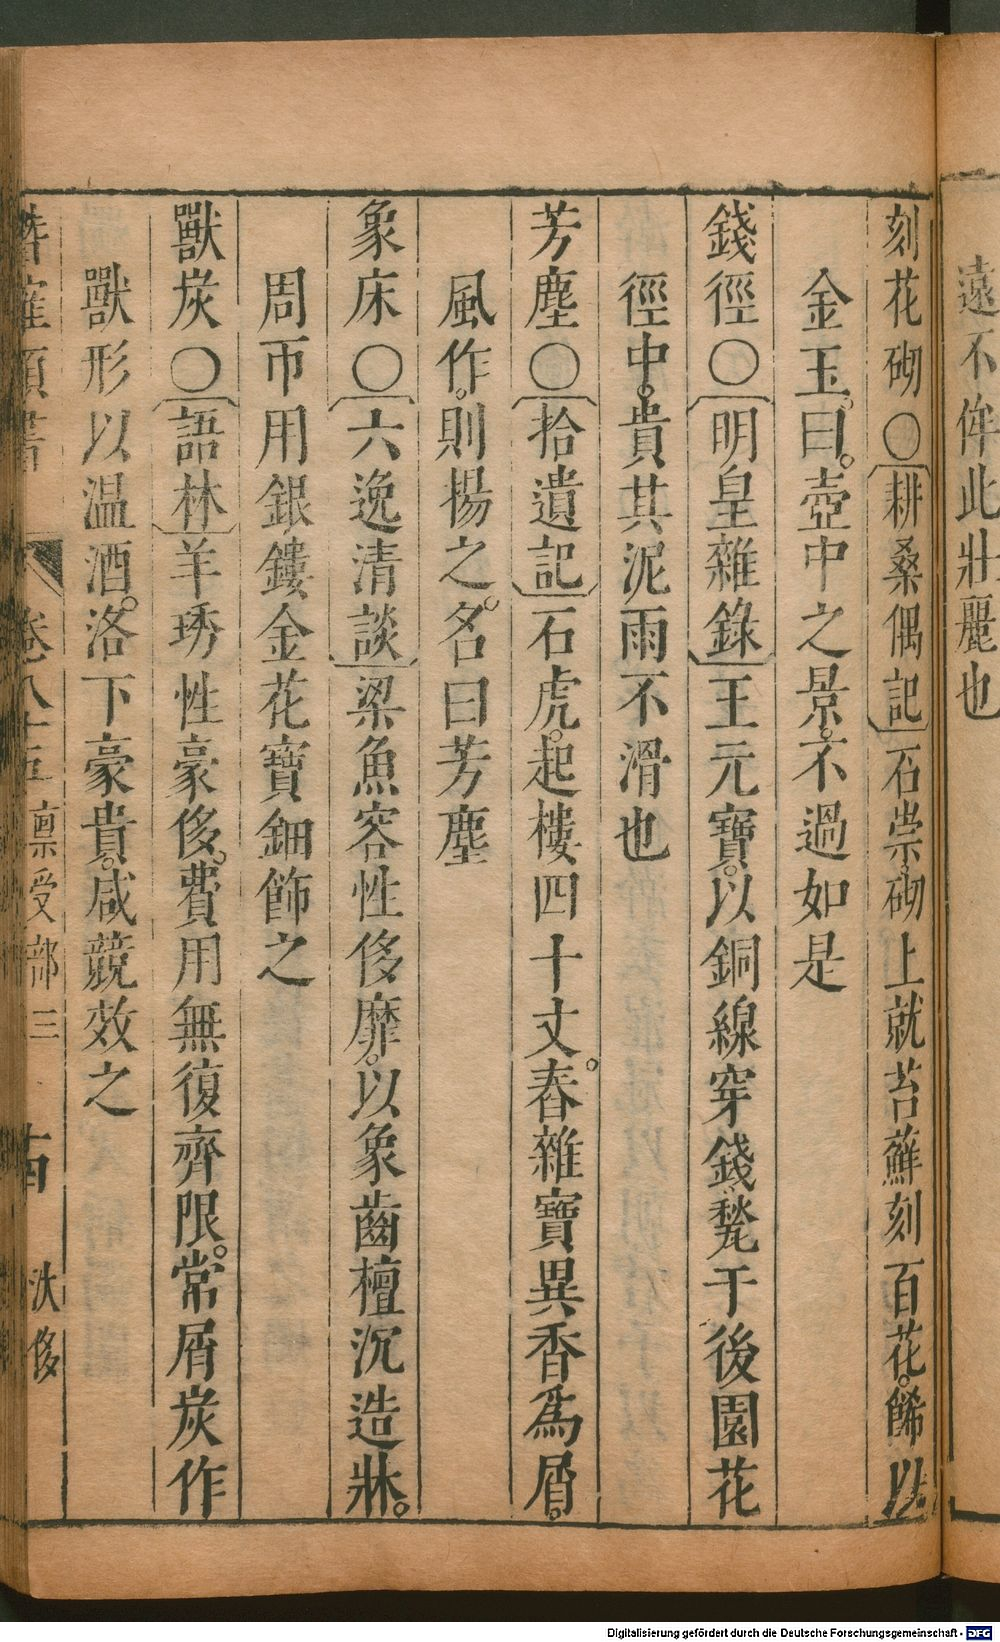 遠不侔此壯麗也
刻花砌〇耕桑偶記石崇砌上就苔蘚刻百花。餙以
金玉。曰。壺中之景。不過如是
錢徑〇明皇雜錄王元寶。以銅線穿錢甃于後園花
徑中。貴其泥雨不滑也
芳塵〇拾遺記石虎。起樓四十丈。舂雜寶異香爲屑。
風作。則揚之。名曰芳塵
象床〇六逸清談梁魚容性侈靡。以象齒檀沉造牀。
周帀用銀鏤金花寶鈿飾之
獸炭〇語林羊琇性豪侈。費用無復齊限。常屑炭作
獸形以温酒。洛下豪貴。咸競效之
卷八十五 稟受部三 汰侈
Digitalisierung gefördert durch die Deutsche Forschungsgemeinschaft - DFG